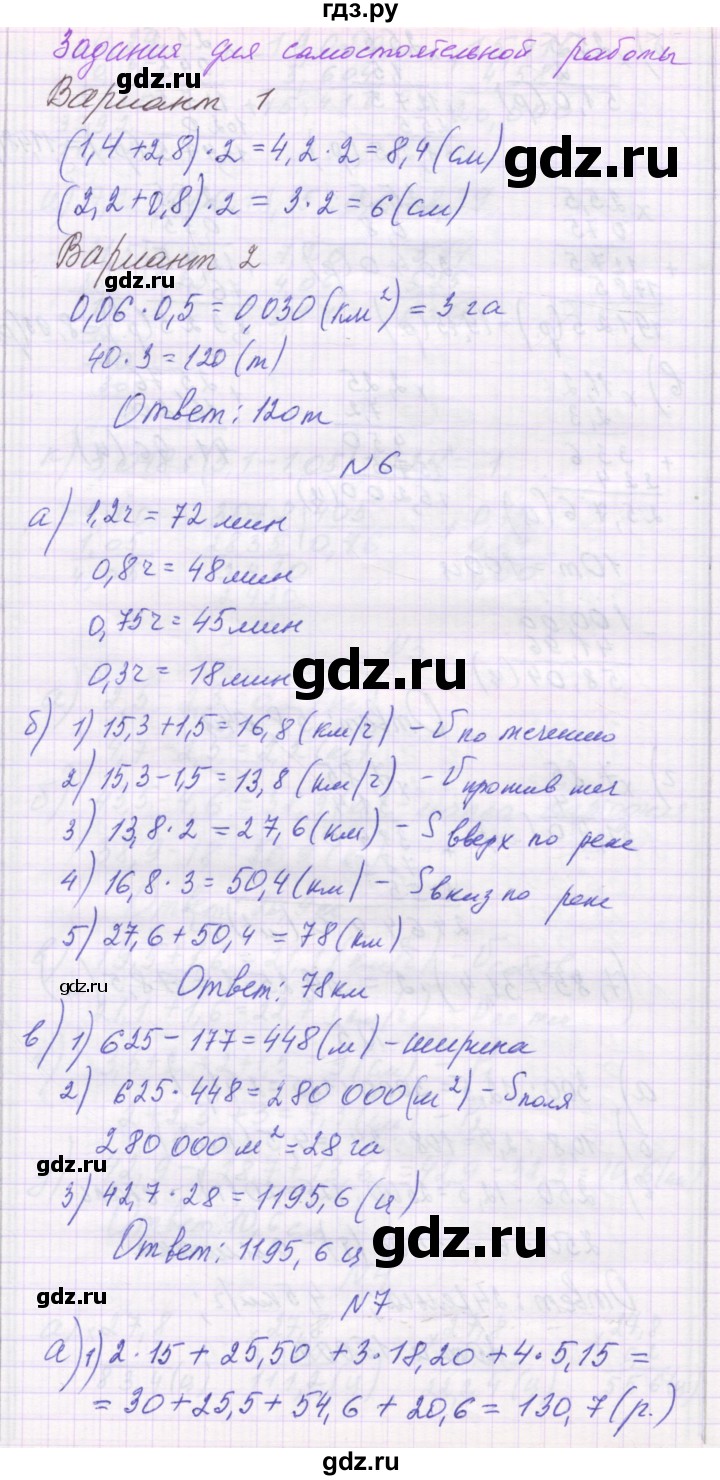 гдз.ру
Задания для самостоятельной работы
gdz.ru
Вариант 1
(1,4+2,8)·2=4,2·2=8,4(см)
gdz.ru
(2,2+0,8)·2=3·2=6(см)
Вариант 2
gdz.ru
0,06·0,5=0,030(км²)=3га
40·3=120(т)
Ответ: 120т
gdz.ru
№6
а) 1,2ч=72мин
0,8ч=48мин
0,75ч=45мин
0,3ч=18мин
gdz.ru
б) 1) 15,3+1,5=16,8(км/ч) – V по течению
2) 15,3-1,5=13,8(км/ч) – V против теч
gdz.ru
3) 13,8·2=27,6(км) – S вверх по реке
4) 16,8·3=50,4(км) – S вниз по реке
gdz.ru
5) 27,6+50,4=78(км)
gdz.ru
Ответ: 78км
в) 1) 625-177=448(м) – ширина
gdz.ru
2) 625·448=280 000(м²) – S поля
280 000м²=28га
gdz.ru
3) 42,7·28=1195,6(ц)
gdz.ru
Ответ: 1195,6ц
gdz.ru
№7
а) 1) 2·15+25,50+3·18,20+4·5,15=
=30+25,5+54,6+20,6=130,7(р.)
gdz.ru
gdz.ru